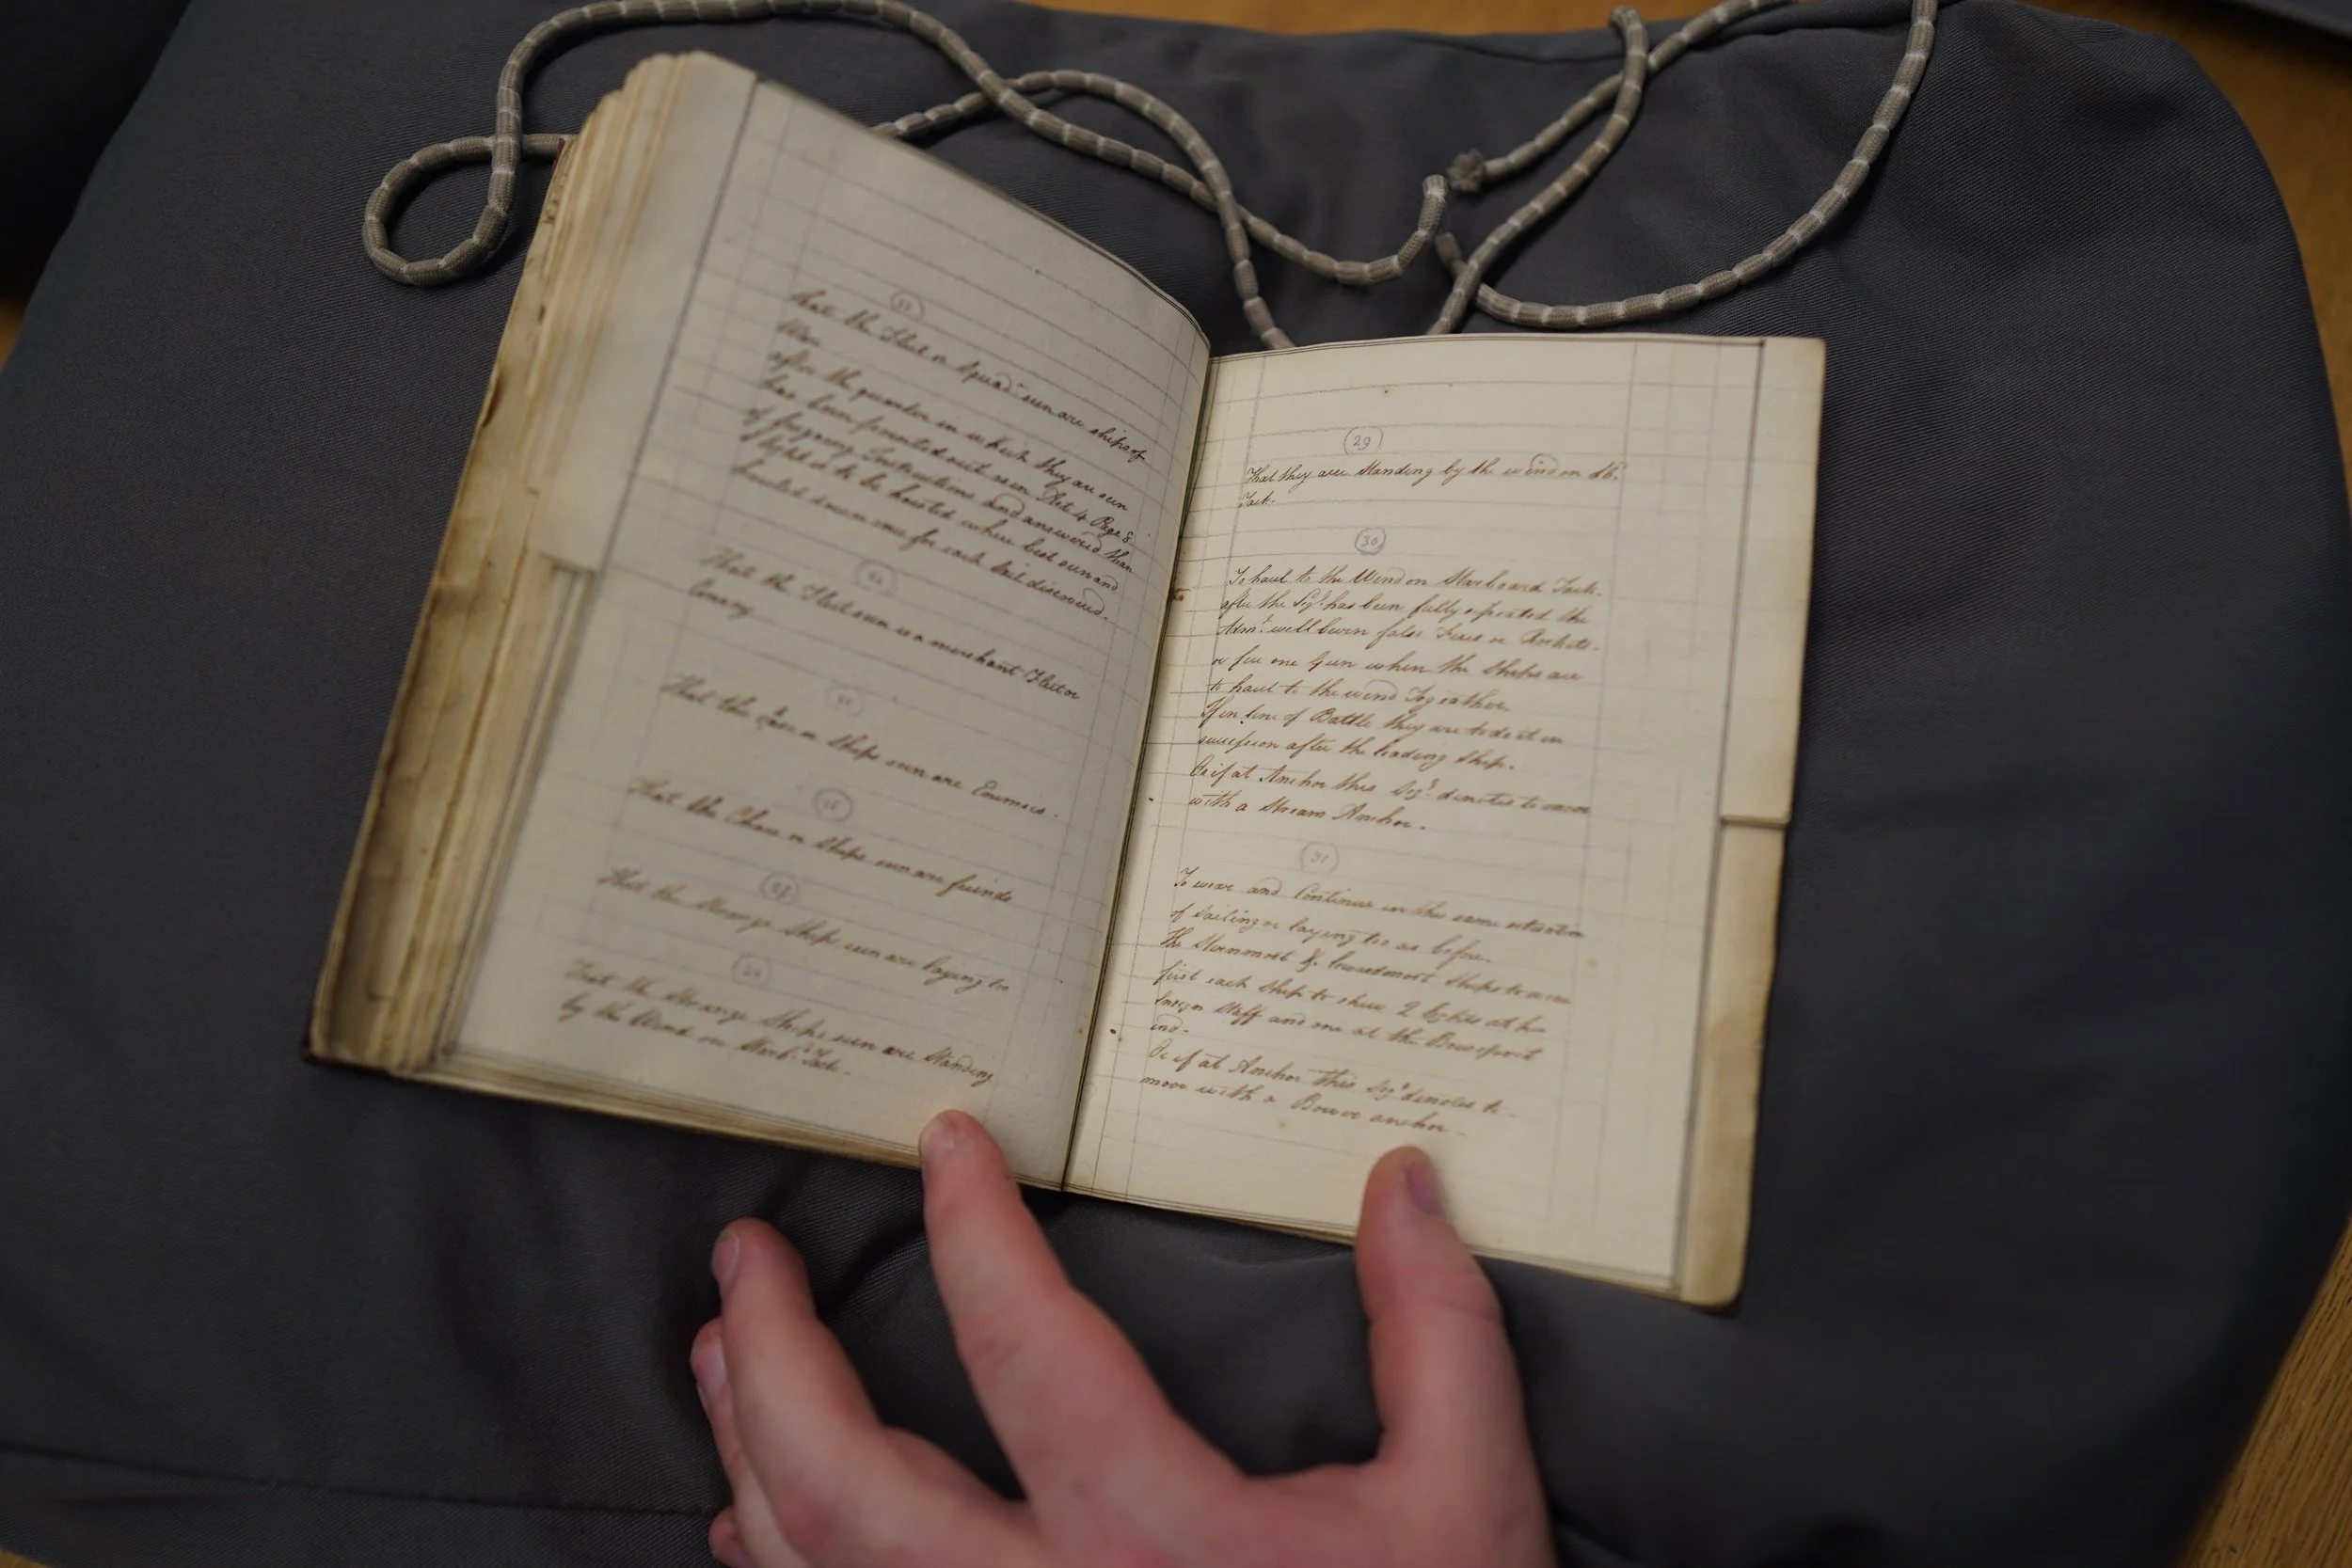 23
that the Fleet or Squadn. seen are ships of
War
after the quarter in which they are seen
has been pointed out as in Art 4 Page 8
of foregoing Instructions and answered than
a light is to be hoisted where best seen and
hauled down once for each Sail discovered.
24
That the Fleet seen is a merchant Fleet or
Convoy
25
That the Chace or Ships seen are Enemies.
26
That the Chace or Ships seen are friends
27
That the Strange Ships seen are laying too
28
That the Strange Ships seen are Standing
by the Wind on Starbd. Tack.
29
That they are Standing by the wind on
Tack.
30
To haul to the Wind on Starboard Tack.
after the Sigl. has been fully repeated the
Adml. will burn false Fires or Rockets.
or fire one Gun when the Ships are
to haul to the wind Togeather.
If in line of Battle they are to do it in
succession after the leading Ship.
Or if at Anchor this Sigl. denotes to moor
with a Stream Anchor.
31
To wear and Continue in the same situation
of Sailing or laying too as before.
the Sternmost & Leewardmost Ships to wear
first each Ship to shew 2 lights at her
Ensign Staff and one at the Bowsprit
end.
Or if at Anchor this Sigl. denotes to
moor with a Bower anchor